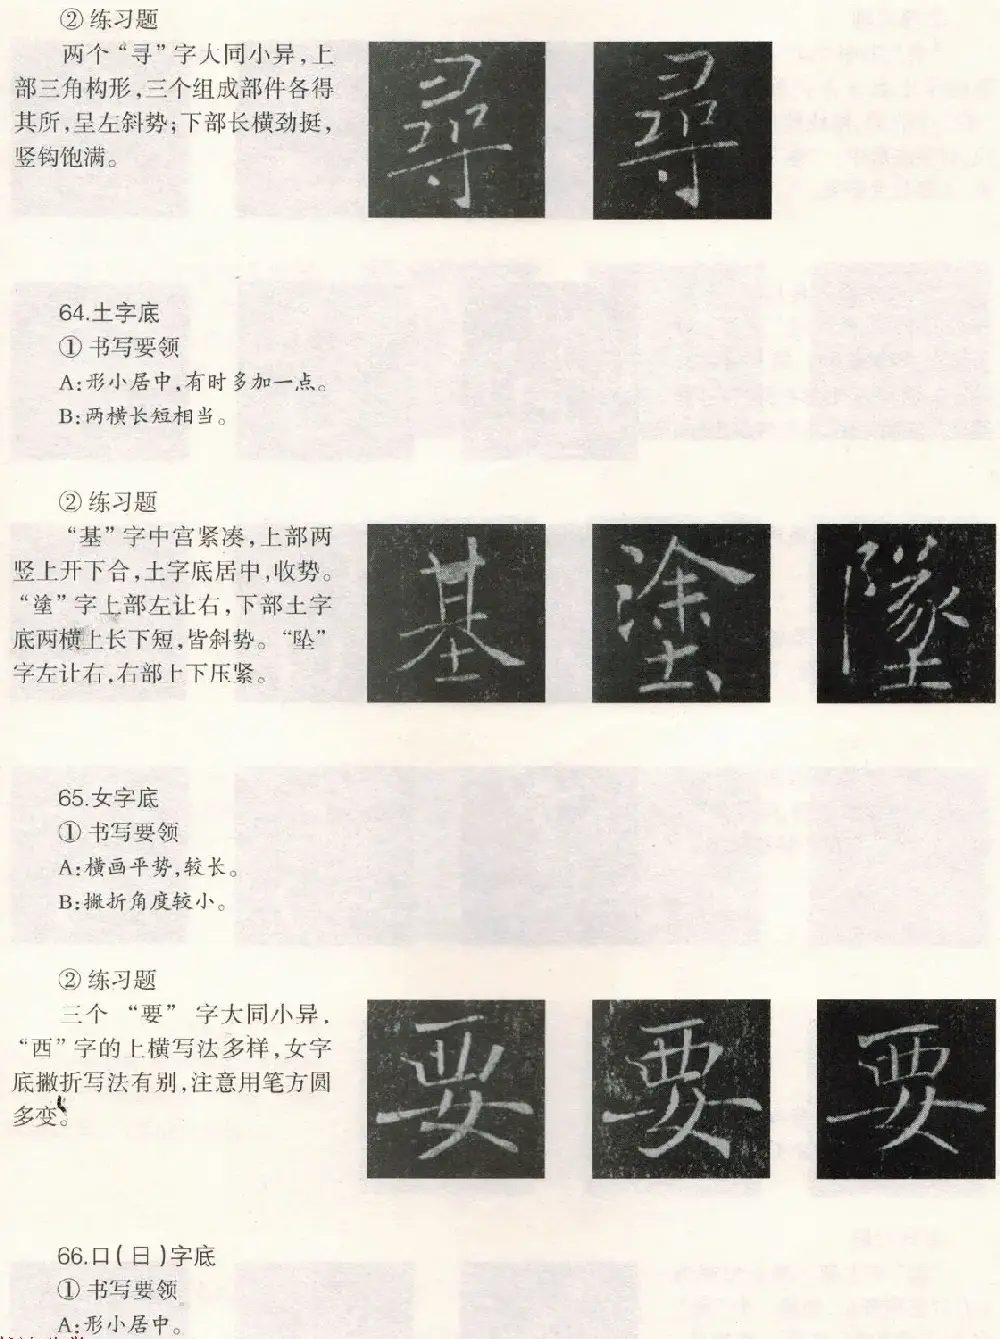 ② 练习题
两个“寻”字大同小异，上
部三角构形，三个组成部件各得
其所，呈左斜势；下部长横劲挺，
竖钩饱满。
尋 尋
64.土字底
① 书写要领
A:形小居中，有时多加一点。
B:两横长短相当。
② 练习题
“基”字中宫紧凑，上部两
竖上开下合，土字底居中，收势。
“塗”字上部左让右，下部土字
底两横上长下短，皆斜势。“坠”
字左让右，右部上下压紧。
基 塗 墜
65.女字底
① 书写要领
A:横画平势，较长。
B:撇折角度较小。
② 练习题
三个“要”字大同小异，
“西”字的上横写法多样，女字
底撇折写法有别，注意用笔方圆
多变。
要 要 要
66.口(日)字底
① 书写要领
A:形小居中。